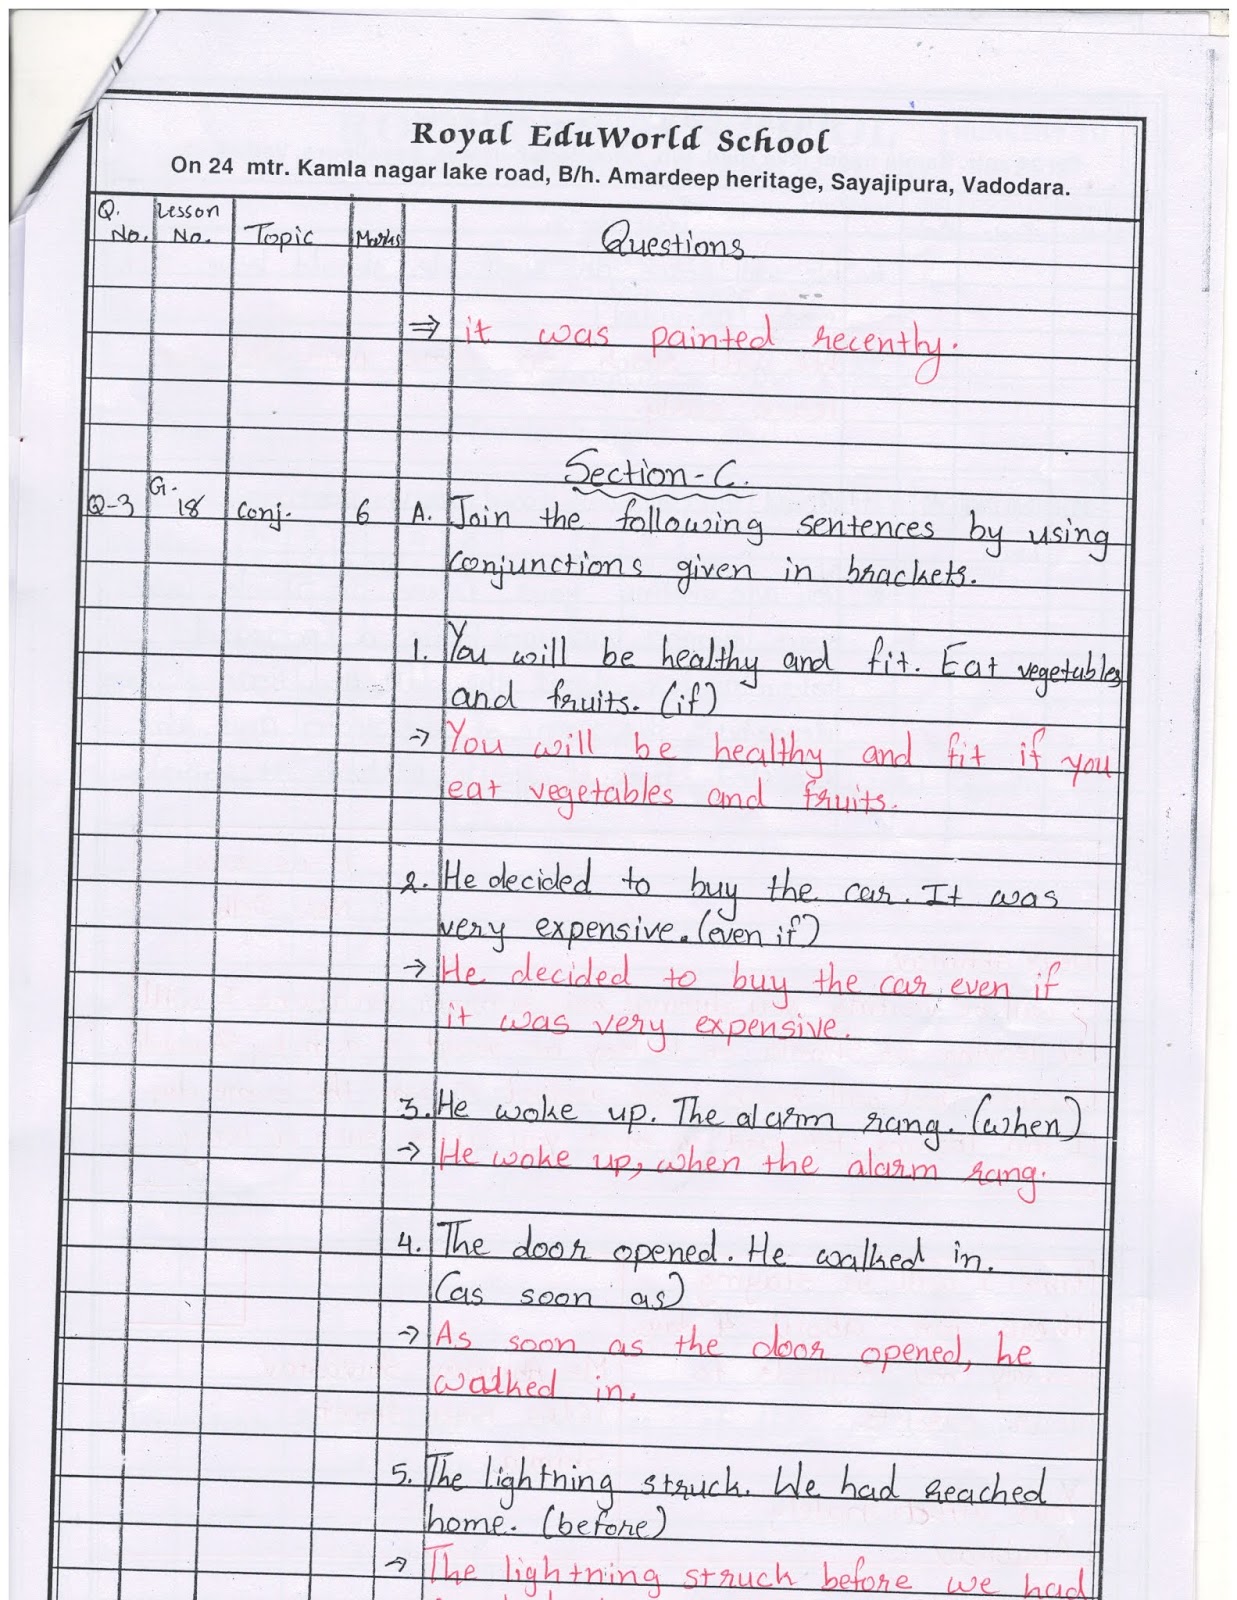 Royal EduWorld School
On 24 mtr. Kamla nagar lake road, B/h. Amardeep heritage, Sayajipura, Vadodara.
Q. No. Lesson No. Topic Marks Questions
⇒ it was painted recently.
Section-C.
Q-3 G. 18 Conj. 6 A. Join the following sentences by using
conjunctions given in brackets.
1. You will be healthy and fit. Eat vegetables
and fruits. (if)
→ You will be healthy and fit if you
eat vegetables and fruits.
2. He decided to buy the car. It was
very expensive. (even if)
→ He decided to buy the car even if
it was very expensive.
3. He woke up. The alarm rang. (when)
→ He woke up, when the alarm rang.
4. The door opened. He walked in.
(as soon as)
→ As soon as the door opened, he
walked in.
5. The lightning struck. We had reached
home. (before)
→ The lightning struck before we had